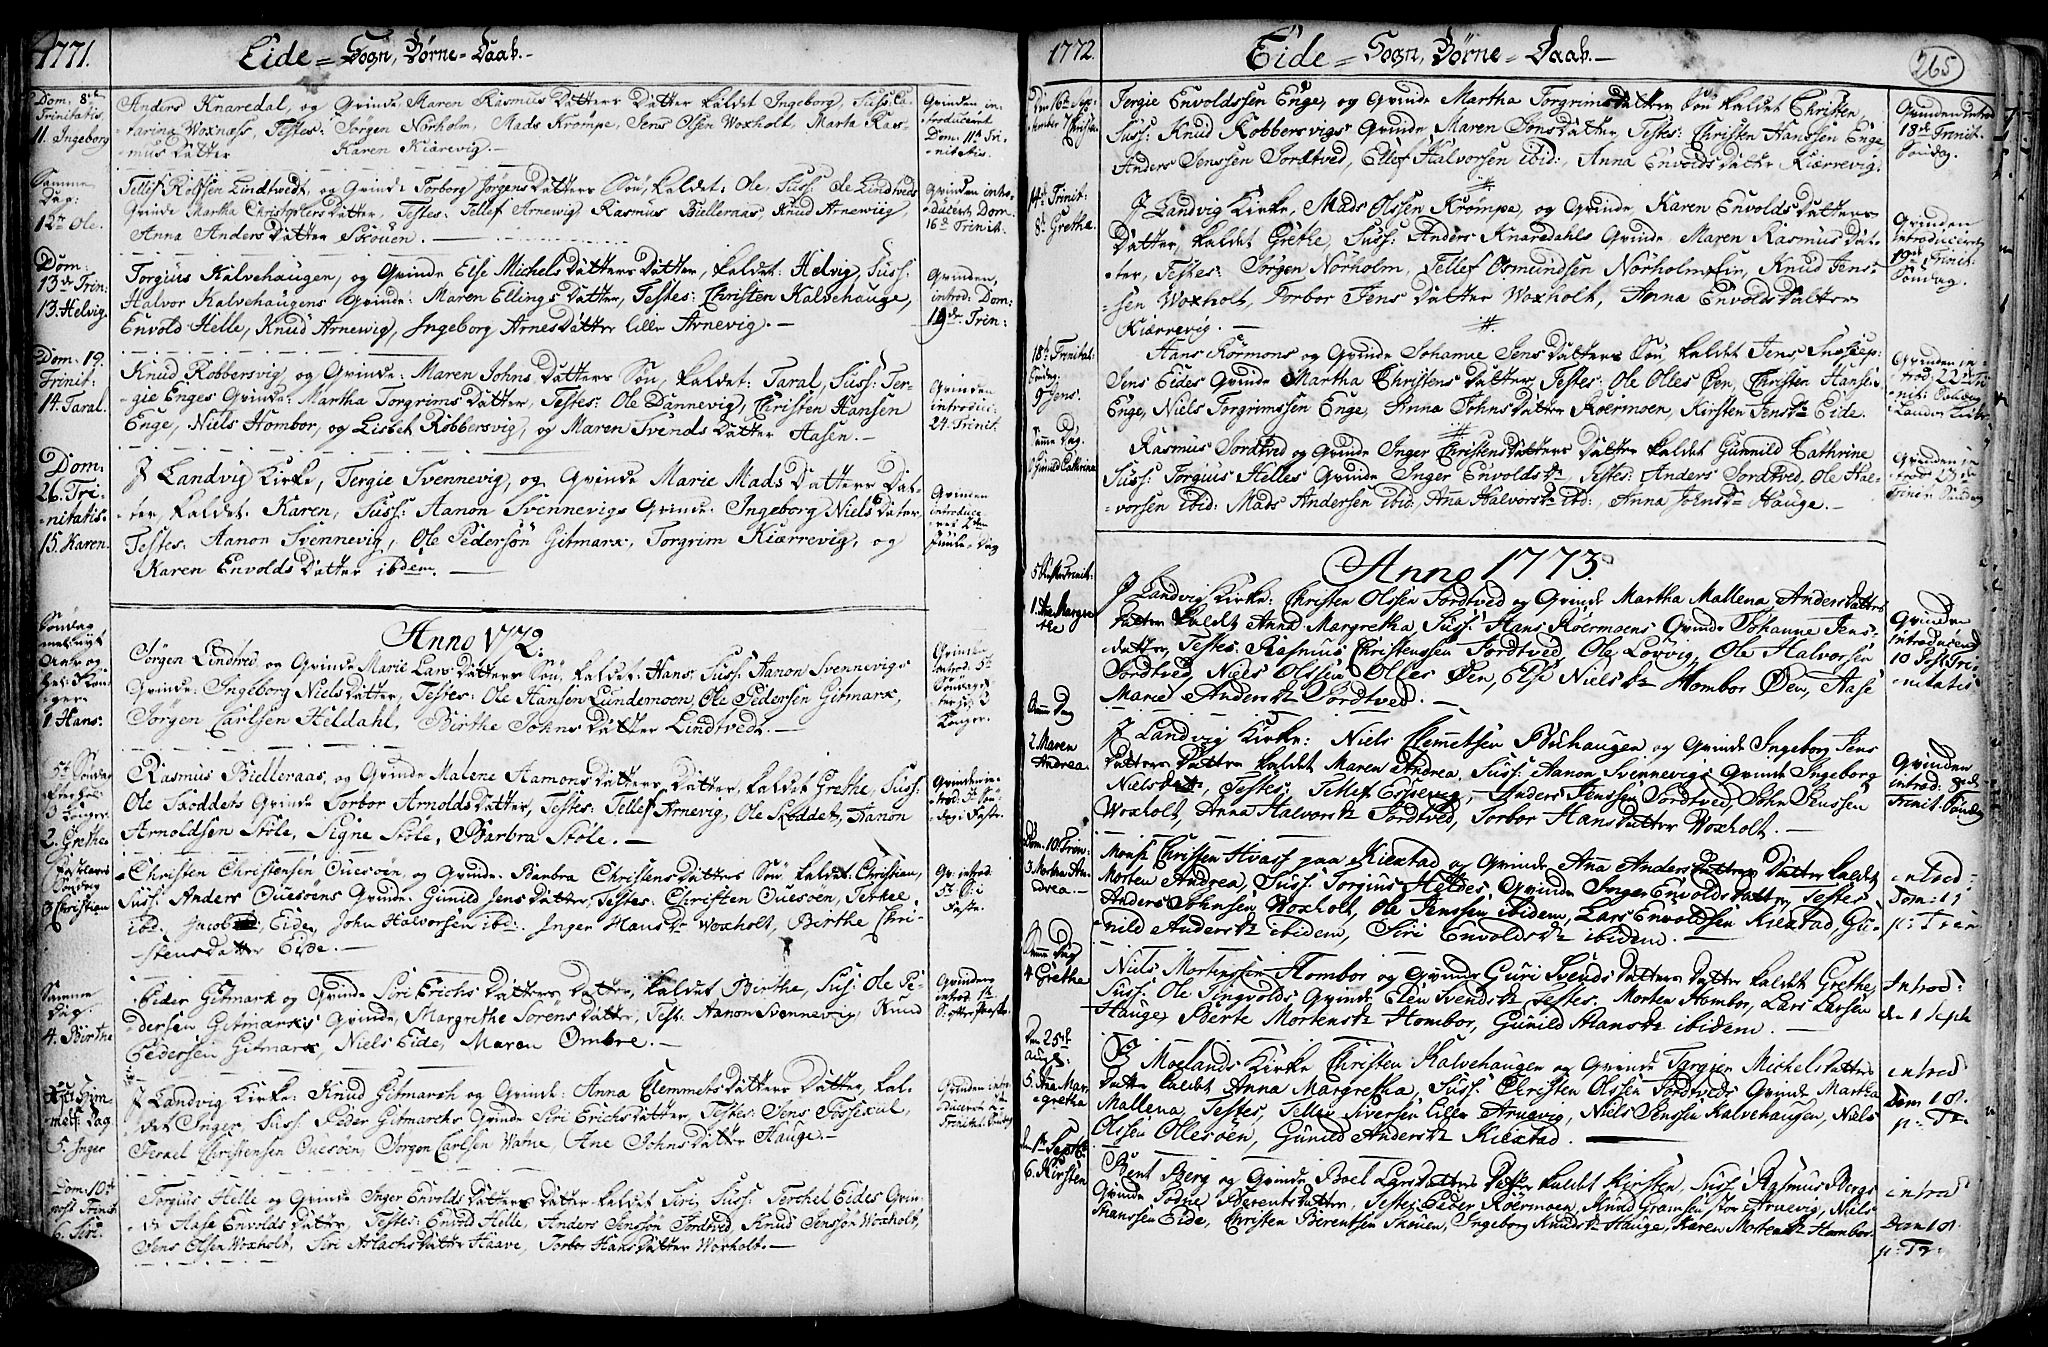 1771.
Eide = Sogn, Børne-Daab.-
Dom. 8de
Trinitatis.
11. Ingeborg
Anders Knaredal, og Qvinde Maren Rasmus Datters Datter kaldet Ingeborg, Suss: Ca-
tarina Woxnæss, Testes: Jørgen Nørholm, Mads Krømpe, Jens Olsen Woxholt, Marta Ras-
mus Datter Karen Kiærevig.-
Qvinden in-
troduceret
Dom. 11te Tri-
nitatis.
Samme
Dag:
12te Ole.
Tellef Rolfsen Lindtvedt, og Qvinde: Torborg Jørgens Datters Søn, kaldet: Ole, Suss: Ole Lindtveds
Qvinde Martha Christophers Datter, Testes: Tellef Arnewig, Rasmus Bielleraas, Knud Arnewiig,
Anna Anders Datter Skouen.-
Qvinden intro-
duceret Dom:
16de Trinit:
Dom:
13de Trin:
13. Helvig.
Torgius Kalvehaugen, og Qvinde Else Michels Datters Datter, kaldet: Helvig, Suss:
Halvor Kalvehaugens Qvinde: Maren Ellings Datter, Testes: Christen Kalvehauge,
Envold Helle, Knud Arnewig, Ingeborg Arnes Datter lille Arnevig.-
Qvinden,
introd: Dom:
19de Trin:
Dom. 19.
Trinit:
14. Taral.
Knud Robbersvig, og Qvinde: Maren Johns Datters Søn, kaldet: Taral, Suss: Ter-
gie Enges Qvinde: Martha Torgrims Datter, Testes: Ole Dannevig, Christen Hansen
Enge, Niels Hombor, og Lisbet Robbersvig, og Maren Svends Datter Aasen.-
Qvinden
introduc:
24. Trinit.
Dom:
26. Tri-
nitatis.
15. Karen.
J Landvig Kirke, Tergie Svennevig, og Qvinde Marie Mads Datters Dat-
ter, kaldet. Karen, Suss: Aanon Svennevigs Qvinde. Ingeborg Niels Datter,
Testes: Aanon Svennevig, Ole Pedersøn Gitmark, Torgrim Kiærrevig, og
Karen Envolds Datter ibdem.-
Qvinden
introduce-
ret 2den
Juule-Dag
Anno 1772.
Søndag
1. Hans:
Jørgen Lindtved og Qvinde Marie Lars Datters Søn, kaldet: Hans, Suss: Aanon Svennevigs
Qvinde: Ingeborg Niels Datter, Testes: Ole Hansen Lundemoen, Ole Pedersen Gitmark,
Jørgen Carlsen Heldahl, Birthe Johns Datter Lindtvedt.-
Qvinden
introd. 5te
Søndag ef-
ter h: 3
Konger.
5te Søndag
Efter hel:
3 Konger.
2. Grethe.
Rasmus Bielleraas, og Qvinde Malene Aamons Datters Datter, kaldet Grethe, Suss:
Ole Skoddets Qvinde Torbor Arnolds Datter, Testes: Tellef Arnevig, Ole Skoddet, Aanon
Arnoldsen Støle, Signe Støle, Barbra Støle.-
Qvinden in-
dag i Faste.
Fastelavns
Søndag
3. Christian
Christen Christensen Ouesøen, og Qvinde: Barbra Christens Datters Søn kaldet: Christian,
Suss: Anders Ouesøens Qvinde: Gunild Jens Datter, Testes: Christen Ouesøen, Terkel
ibd. Jacob Eide, John Halvorsen ibd:. Inger Hans Dtr Woxholt, Birthe Chri-
stensdatter Eide.-
Qv: introd:
5te S: i
Faste.
Samme
Dag.
4. Birthe
Peder Gitmark og Qvinde Siri Erichs Datters Datter, kaldet Birthe, Sus: Ole Pe-
dersen Gitmarks Qvinde, Margrethe Sørens Datter, Test: Aanon Svennevig, Knud
Pedersen Gitmark, Niels Eide, Maren Ombre.-
Qvinden
introd. 1te
S: efter Paaske.
Kristi Him-
melf. Dag
5. Inger
J Landvig Kirke: Knud Gitmarch og Qvinde: Anna Clemmets Datters Datter, kal-
det Inger, Suss Peder Gitmarchs Qvinde Siri Erichs Datter, Testes: Jens Fossekal,
Terkel Christensen Ouesøen, Jørgen Carlsen Warne, Ane Johns Datter Hauge.-
Qvinden intro-
duceret
Trinitat. Søndag
Dom: 10de
post Trinit:
6. Siri.
Torgius Helle og Qvinde Inger Envolds Datters Datter kaldet Siri, Suss: Terchel Eides Qvin-
de Aase Envolds Datter, Testes: Envold Helle, Anders Jenssøn Tordtved, Knud Jenssøn Woxholt,
Jens Olsen Woxholt, Siri Aslachs Datter Haave, Torbor Hans Datter Woxholt.-
1772.
Eide = Sogn, Børne-Daab.-
265
Den 16de Sep-
tember 7 Christen
Tergie Envoldssen Enge, og Qvinde Martha Torgrims Datters Søn kaldet Christen
Suss: Knud Robbersvigs Qvinde Maren Jons Datter, Testes: Christen Hanssen Enge
Anders Jenssen Tordtved, Ellef Halvorsen ibid: Anna Envolds Datter Kiærrevig.
Qvinden introd
18de Trinit.
Søndag.
14de Trinit:
8. Grethe.
J Landvig Kirke, Mads Olssen Krømpe, og Qvinde, Karen Envolds Datters
Datter, kaldet Grethe, Suss: Anders Knaredahls Qvinde, Maren Rasmus Dat-
ter, Testes: Jørgen Nørholm, Tellef Osmundsen Nørholms Eie, Knud Jens-
sen Woxholt, Torbor Jens Datter Woxholt, Anna Envolds Datter
Kiærrevig.-
Qvinden
introduceret
19de Trinit:
Søndag.
18de Trinitat:
Søndag.
9 Jens.
Hans Rørmons og Qvinde Johanne Jens Datters Søn kaldet Jens Suscep:
Jens Eides Qvinde Martha Christens Datter, Testes: Ole Olles Øen, Christen Hansen
Enge, Niels Torgrimssen Enge, Anna Johns Datter Roermoen, Kirsten Jensdtr Eide.
Qvinden in-
trod 22de Tri-
nit: Søndag
Samme Dag.
Gunild Cathrine
Rasmus Tordtved og Qvinde Inger Christens Datters Datter kaldet Gunnild Cathrine
Suss: Torgius Helles Qvinde Inger Envoldsdtr, Testes: Anders Tordtved, Ole Hal-
vorsen ibid: Mads Andersen ibid: Ana Halvorsdtr ibd:, Anna Jensdtr Hauge.-
Qvinden in-
trod 23de
Trinit: Søndag
Anno 1773.
1. Ane Margre-
the
J Landvig Kirke: Christen Olssen Tordtved og Qvinde Martha Mallena Anders Datters
Datter kaldet Anna Margretha, Suss: Hans Roermoens Qvinde Johanne Jens-
datter, Testes: Rasmus Christenssen Tordtved, Ole Løvvig, Ole Halvorsen
Tordtved, Niels Olssen Olles Øen, Else Nielsdtr Hombor Øen, Aase
Marie Andersdtr Tordtved.-
Qvinden
introducered
10 Post Tri-
nitatis
Samme Dag
2. Maren
Andrea.
J Landvig Kirke: Niels Clemetsen Buehaugen og Qvinde Ingeborg Jens
Datters Datter kaldet Maren Andrea, Suss: Aanon Svennevigs Qvinde Ingeborg
Nielsdatr, Testes: Tellef Espevig, Anders Jenssen Tordtved, John Jenssen
Woxholt, Anna Halvorsdtr Tordtved, Torbor Hans Datter Woxholt.-
Qvinden
introd: 8de
Trinit: Søndag
Dom. 10 Trin:
3. Morten An-
drea.-
Mons: Christen Hvass paa Kiextad og Qvinde Anna Anders Datters Datter kaldet
Morten Andrea, Suss: Torjus Heldes Qvinde Inger Envoldsdatter, Testes
Anders Johnsen Woxholt, Ole Jenssen ibidem, Lars Envoldsen Kiextad, Gu-
nild Andersdtr ibidem, Siri Envoldsdtr ibidem.-
introd:
Dom: 11
p: Trin
Samme Dag
4. Grethe
Niels Mortenssen Hombor og Qvinde Guri Svends Datters Datter kaldet Grethe,
Suss: Ole Tingvolds Qvinde Elen Svendsdtr Testes: Morten Hombor, Lars Larsen
Hauge, Berte Mortensdtr Hombor, Gunild Hansdtr ibidem.-
Introd:
den 1 Seph
Den 25de
Aug:
5. Ana Mar-
gretha
J Moelands Kirke Christen Kalvehaugen og Qvinde Targier Michels Datters
Datter kaldet Anna Margretha, Suss: Christen Olssen Tordtveds Qvinde Martha
Mallena, Testes, Tellef Siversen lille Arnevig, Niels Jenssen Kalvehaugen, Niels
Olssen Ollesøen, Gunild Andersdtr Kiextad.
introd
Dom 18.
p: Tr.
d. 1te Septbr
6. Kirsten
Bent Berg og Qvinde Boel Lars Datters Datter kaldet Kirsten, Suss: Rasmus Bergs
Qvinde Tobie Berents Datter, Testes Peder Röermoen, Knud Gramsen stor Arnevig, Niels
Hanssen Eide, Christen Berentsen Skouen, Ingeborg Knudsdtr Hauge, Karen Mortensdtr Hombor.
introd
Dom 18.
p: Tr.